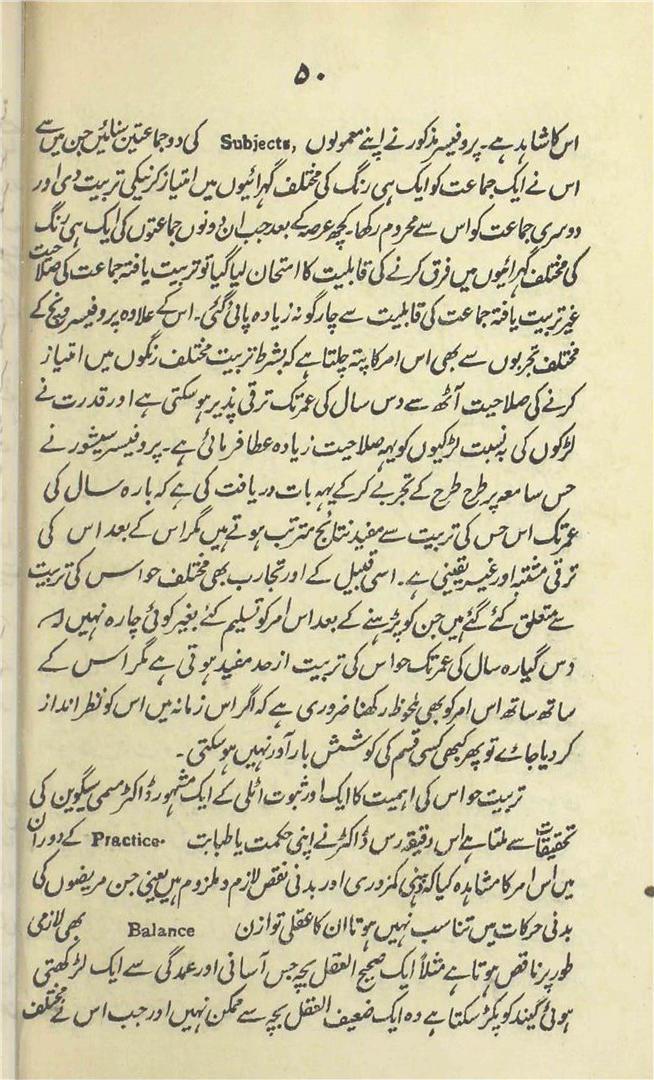 ۵۰
اس کا شاہد ہے۔ پروفیسر مذکور نے اپنے معمولوں Subjects, کی دو جماعتیں بنائیں جن میں سے
اس نے ایک جماعت کو ایک ہی رنگ کی مختلف گہرائیوں میں امتیاز کرنیکی تربیت دی اور
دوسری جماعت کو اس سے محروم رکھا۔ کچھ عرصہ کے بعد جب ان دونوں جماعتوں کی ایک ہی رنگ
کی مختلف گہرائیوں میں فرق کرنے کی قابلیت کا امتحان لیا گیا تو تربیت یافتہ جماعت کی صلاحیت
غیر تربیت یافتہ جماعت کی قابلیت سے چار گونہ زیادہ پائی گئی۔ اس کے علاوہ پروفیسر ونچ کے
مختلف تجربوں سے بھی اس امر کا پتہ چلتا ہے کہ بشرط تربیت مختلف رنگوں میں امتیاز
کرنے کی صلاحیت آٹھ سے دس سال کی عمر تک ترقی پذیر ہوسکتی ہے اور قدرت نے
لڑکوں کی بہ نسبت لڑکیوں کو یہہ صلاحیت زیادہ عطا فرمائی ہے۔ پروفیسر سیشور نے
حس سامعہ پر طرح طرح کے تجربے کرکے یہہ بات دریافت کی ہے کہ بارہ سال کی
عمر تک اس حس کی تربیت سے مفید نتائج مترتب ہوتے ہیں مگر اس کے بعد اس کی
ترقی مشتبہ اور غیر یقینی ہے۔ اسی قبیل کے اور تجارب بھی مختلف حواس کی تربیت
سے متعلق کئے گئے ہیں جن کو پڑہنے کے بعد اس امر کو تسلیم کئے بغیر کوئی چارہ نہیں کہ
دس گیارہ سال کی عمر تک حواس کی تربیت از حد مفید ہوتی ہے مگر اس کے
ساتھ ساتھ اس امر کو بھی ملحوظ رکھنا ضروری ہے کہ اگر اس زمانہ میں اس کو نظر انداز
کر دیا جائے تو پھر کبھی کسی قسم کی کوشش بار آور نہیں ہوسکتی۔
تربیت حواس کی اہمیت کا ایک اور ثبوت اٹلی کے ایک مشہور ڈاکٹر مسمی سیگوین کی
تحقیقات سے ملتا ہے اس دقیقہ رس ڈاکٹر نے اپنی حکمت یا طبابت Practice. کے دوران
میں اس امر کا مشاہدہ کیا کہ ذہنی کمزوری اور بدنی نقص لازم و ملزوم ہیں یعنی جن مریضوں کی
بدنی حرکات میں تناسب نہیں ہوتا ان کا عقلی توازن Balance بھی لازمی
طور پر ناقص ہوتا ہے مثلاً ایک صحیح العقل بچہ جس آسانی اور عمدگی سے ایک لڑکھتی
ہوئی گیند کو پکڑ سکتا ہے وہ ایک ضعیف العقل بچہ سے ممکن نہیں اور جب اس نے مختلف